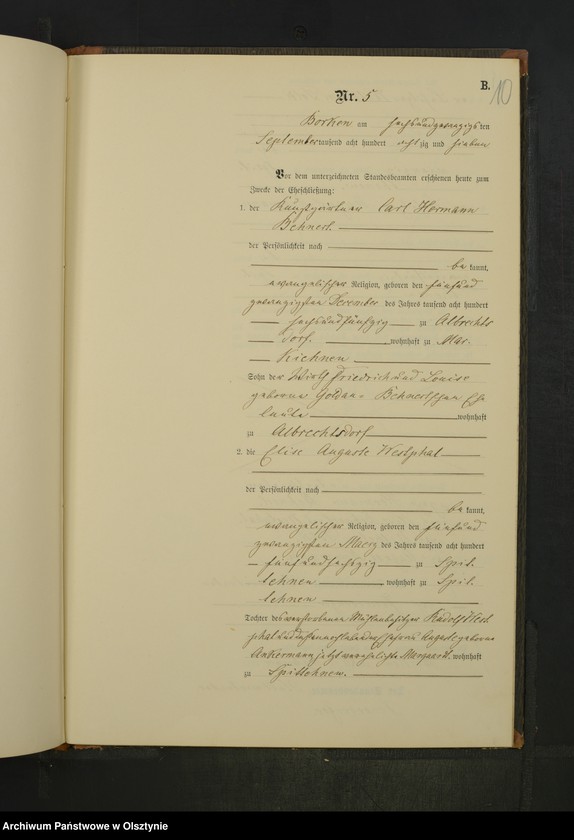 B.
10
Nr. 5
Borken am sechsundzwanzigsten
September tausend acht hundert achtzig und sieben
Vor dem unterzeichneten Standesbeamten erschienen heute zum
Zwecke der Eheschließung:
1. der Kunstgärtner Carl Hermann
Behnert.
der Persönlichkeit nach
be kannt,
evangelischer Religion, geboren den fünfund
zwanzigsten Dezember des Jahres tausend acht hundert
sechsundfünfzig zu Albrechts
dorf, wohnhaft zu
Sohn des Wirth Friedrich und Louise
geborene Behnertschen Ehe
leute wohnhaft
zu Albrechtsdorf
2. die Elise Auguste Westphal
der Persönlichkeit nach
be kannt,
evangelischer Religion, geboren den fünfund
zwanzigsten Maerz des Jahres tausend acht hundert
fünfundsechszig zu Spit
lehnen wohnhaft zu Spit
lehnen
Tochter des verstorbenen Mühlenbesitzer Rudolf West
phal und dessen geborene
Ankermann jetzt verehelichte wohnhaft
zu
Archiwum Państwowe w Olsztynie